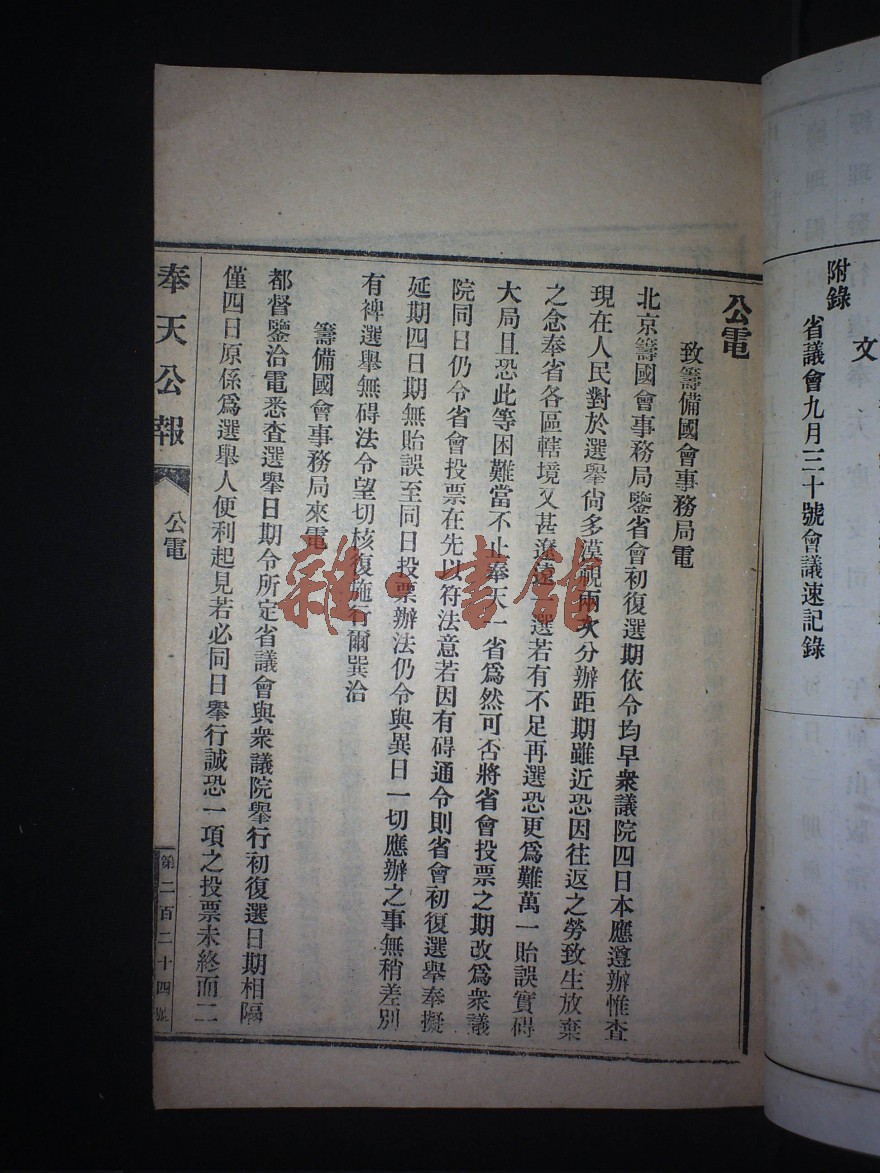 文
附錄
省議會九月三十號會議速記錄
公電
致籌備國會事務局電
北京籌國會事務局鑒省會初復選期依令均早衆議院四日本應遵辦惟查
現在人民對於選舉尙多漠視兩次分辦距期雖近恐因往返之勞致生放棄
之念奉省各區轄境又甚遼遠選若有不足再選恐更爲難萬一貽誤實碍
大局且恐此等困難當不止奉天一省爲然可否將省會投票之期改爲衆議
院同日仍令省會投票在先以符法意若因有碍通令則省會初復選舉奉擬
延期四日期無貽誤至同日投票辦法仍令與異日一切應辦之事無稍差別
有裨選舉無碍法令望切核復施行爾巽洽
籌備國會事務局來電
都督鑒洽電悉查選舉日期令所定省議會與衆議院舉行初復選日期相隔
僅四日原係爲選舉人便利起見若必同日舉行誠恐一項之投票未終而二
奉天公報
公電
第二百二十四號
雜·書館